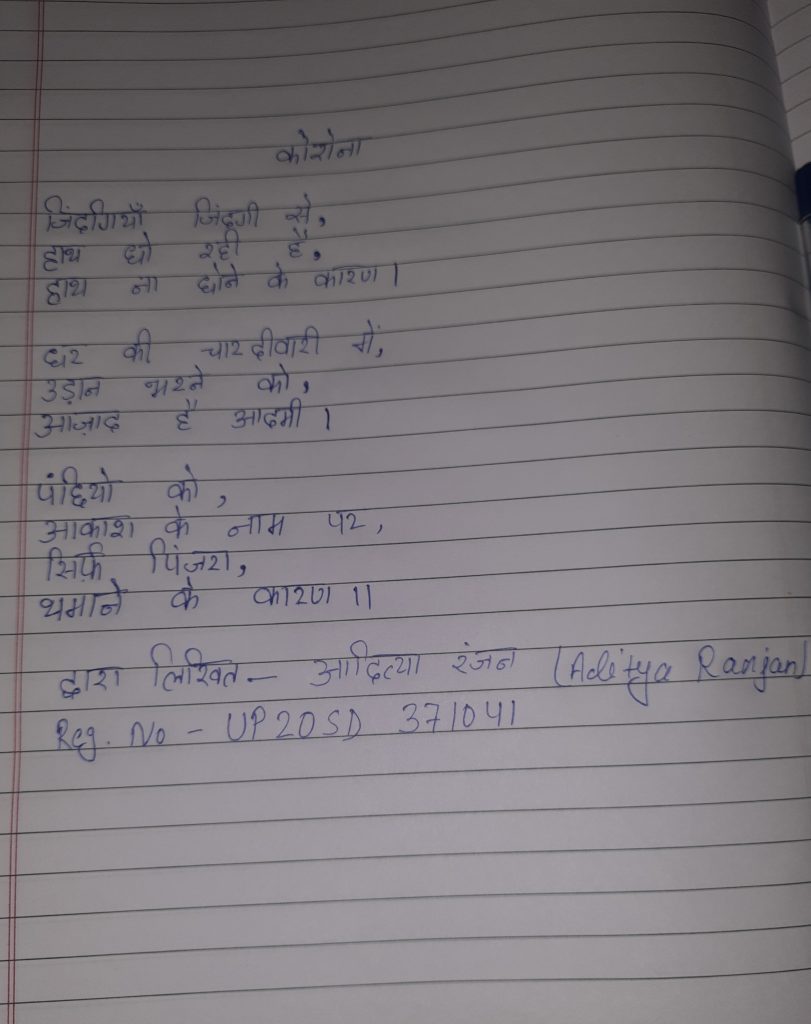 कोरोना
जिंदगियाँ जिंदगी से,
हाथ धो रही है,
हाथ ना धोने के कारण।
घर की चारदीवारी में,
उड़ान भरने को,
आज़ाद है आदमी।
पंछियो को,
आकाश के नाम पर,
सिर्फ़ पिंजरा,
थमाने के कारण ॥
द्वारा लिखित - आदित्या रंजन (Aditya Ranjan)
Reg. No - UP20SD 371041